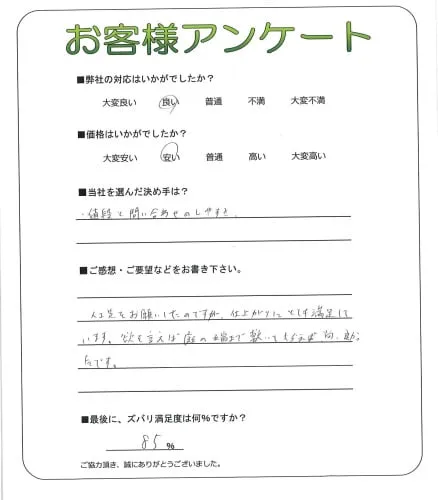 お客様アンケート
■弊社の対応はいかがでしたか?
大変良い 良い 普通 不満 大変不満
■価格はいかがでしたか?
大変安い 安い 普通 高い 大変高い
■当社を選んだ決め手は?
・値段と問い合わせのしやすさ
■ご感想・ご要望などをお書き下さい。
人工芝をお願いしたのですが、仕上がりにとても満足して
います。欲を言えば庭の端まで敷いて
たです。
■最後に、ズバリ満足度は何%ですか?
85%
ご協力頂き、誠にありがとうございました。